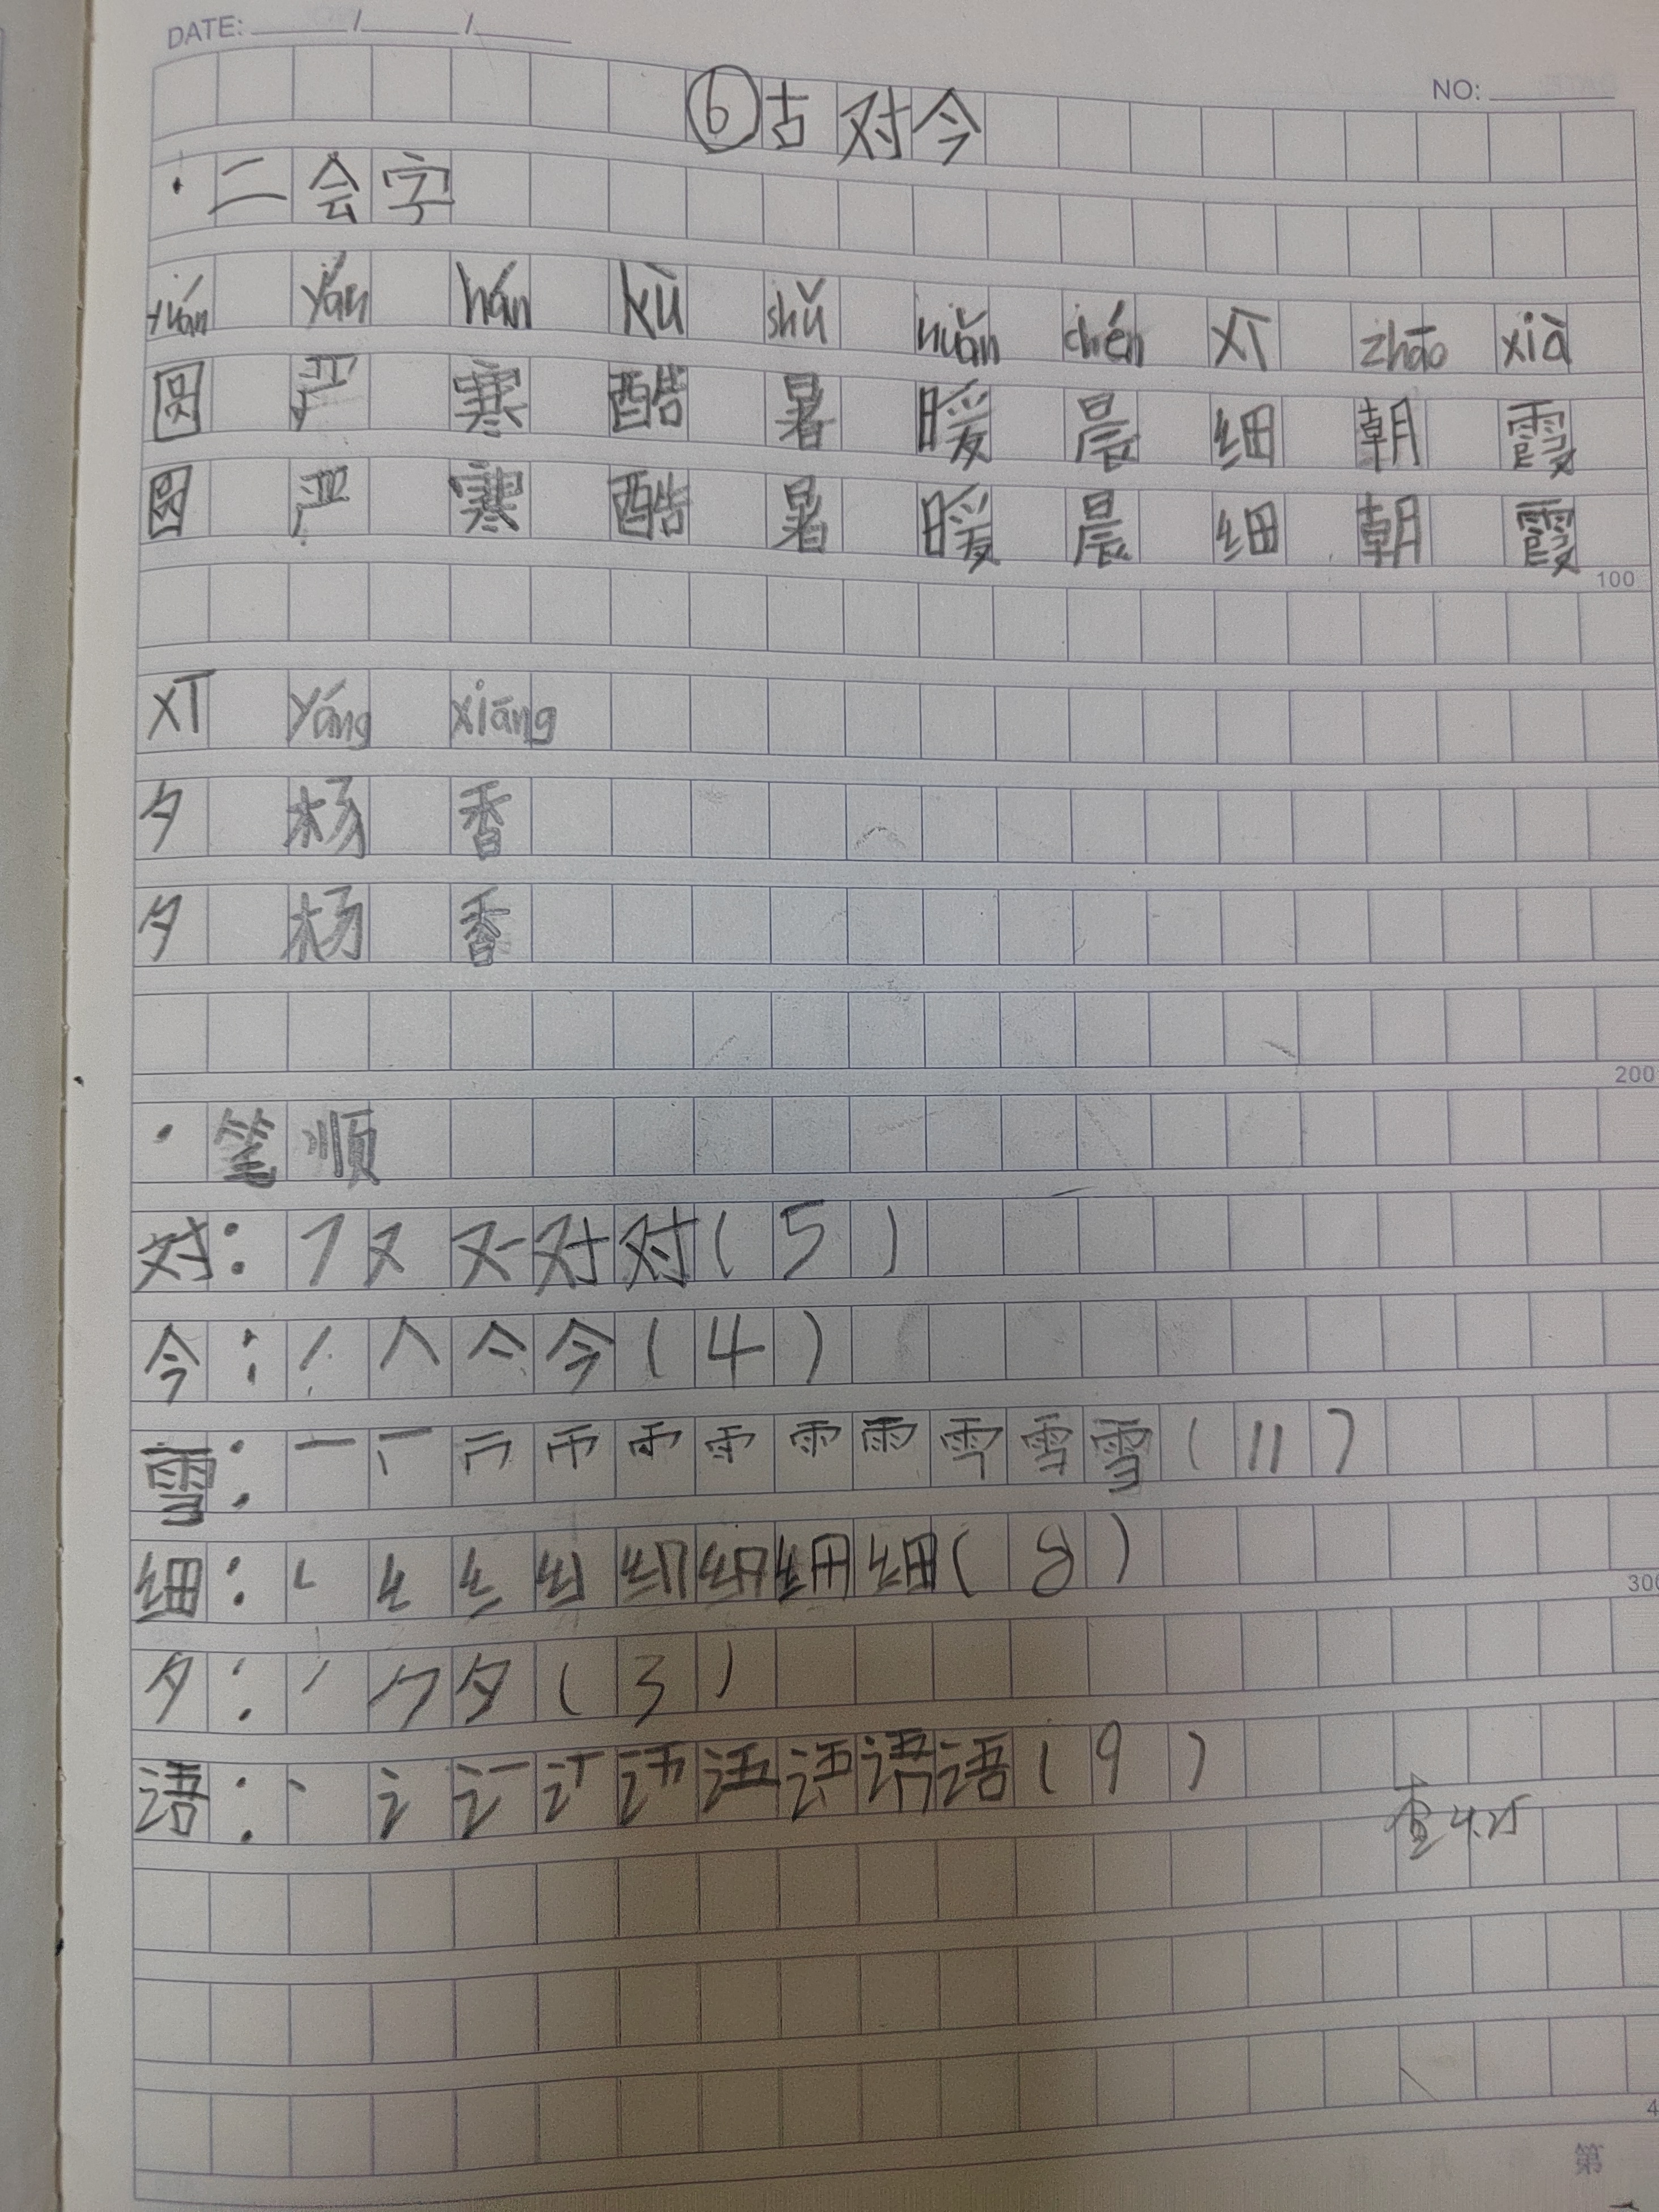 DATE: / /
NO:
⑥古对今
·二会字
yuán yán hán kù shǔ nuǎn chén xì zhāo xiá
圆 严 寒 酷 暑 暖 晨 细 朝 霞
圆 严 寒 酷 暑 暖 晨 细 朝 霞
100
xī yáng xiāng
夕 杨 香
夕 杨 香
200
·笔顺
对：㇇又 对对(5)
今：丿人亼今(4)
雪：一 雨 雪(11)
细： 纟 细(8)
300
夕：丿ク夕(3)
语：丶讠 语(9)
查4.25
第